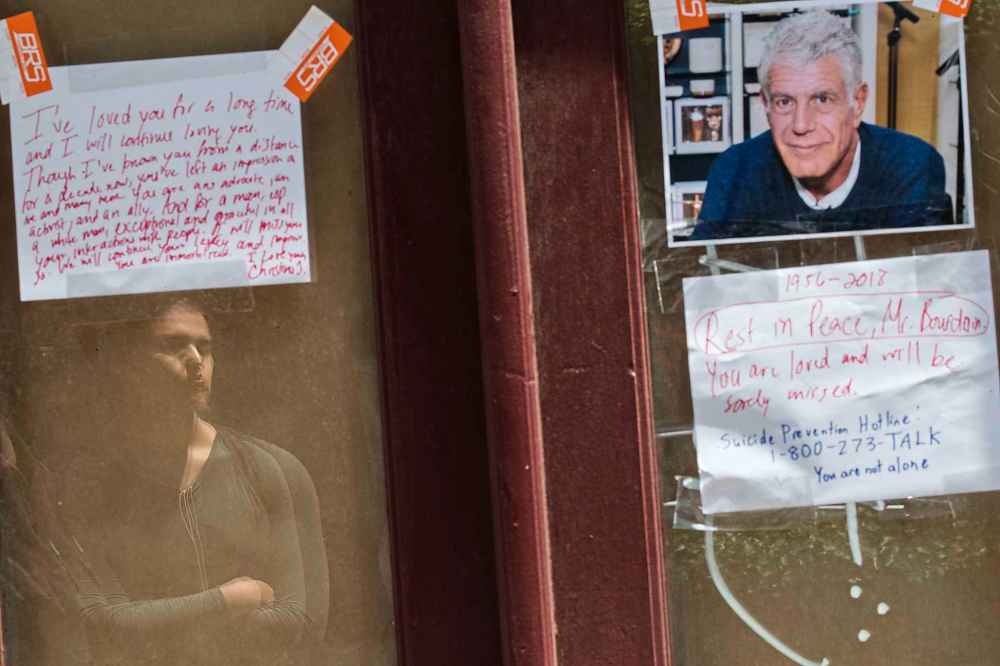 BRS
BRS
I've loved you for a long time
and I will continue loving you.
Though I've known you from a distance
for a decade now, you've left an impression on
me and many more. You are an advocate, an
activist, and an ally. And for a man, esp.
a white man, exceptional and graceful in all
your interactions with people. I will miss you
So we will continue your legacy and
You are immortalized. I love you,
Christine J.
RS
1956-2018
Rest in Peace, Mr. Bourdain.
You are loved and will be
sorely missed.
Suicide Prevention Hotline:
1-800-273-TALK
You are not alone